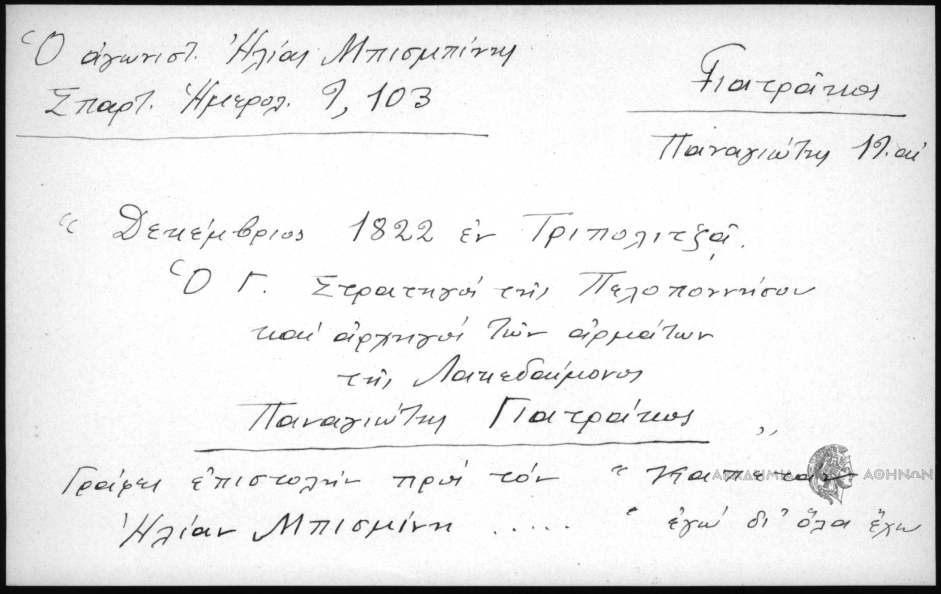 Ὁ ἀγωνιστ. Ἠλίας Μπισμπίνης
Σπαρτ. Ἡμερολ. 9, 103
Γιατράκος
Παναγιώτης 19. αἰ
“ Δεκέμβριος 1822 ἐν Τριπολιτζᾷ.
Ὁ Γ. Στρατηγός τῆς Πελοποννήσου
καί ἀρχηγός τῶν ἁρμάτων
τῆς Λακεδαίμονος
Παναγιώτης Γιατράκος „
Γράφει ἐπιστολήν πρός τόν “ Καπετάν
Ἠλίαν Μπισμίνη ..... “ ἐγώ δι' ὅλα ἔχω
ΑΚΑΔΗΜΙΑ ΑΘΗΝΩΝ